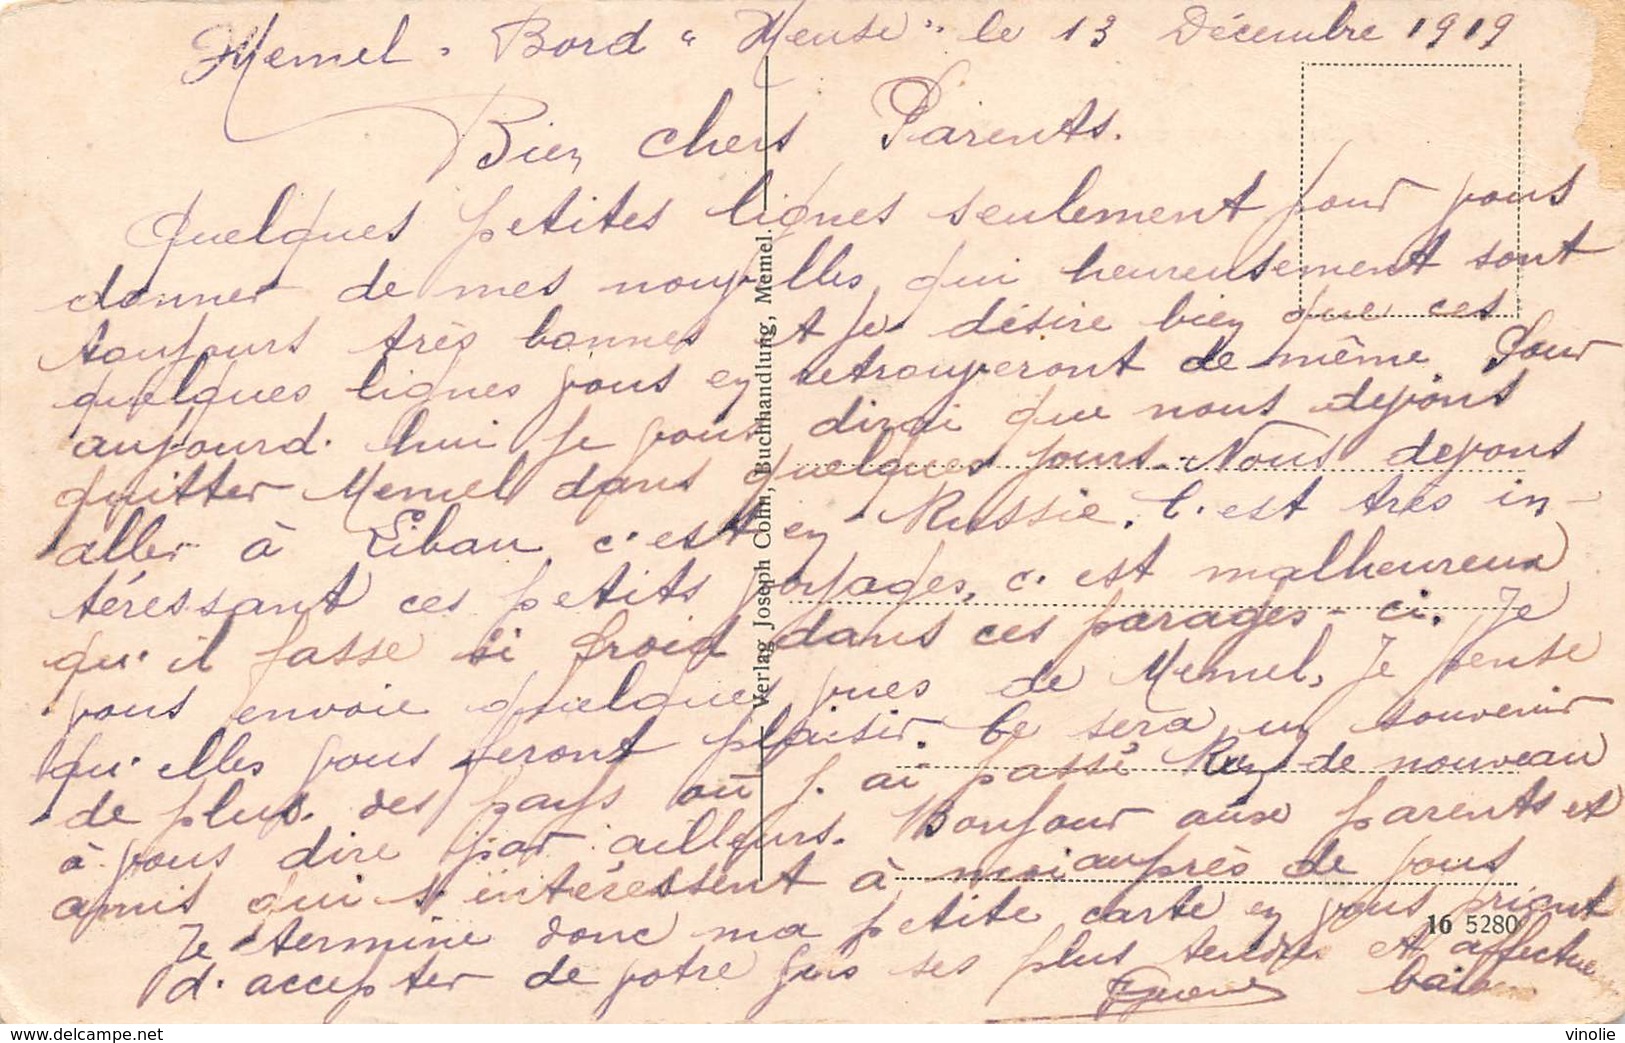 Memel. Bord "Meuse" le 13 Décembre 1919
Bien chers Parents.
Quelques petites lignes seulement pour vous
donner de mes nouvelles, qui heureusement sont
toujours très bonnes et je désire bien que ces
quelques lignes vous en retrouveront de même. Pour
aujourd'hui je vous dirai que nous devons
quitter Memel dans quelques jours. Nous devons
aller à Libau, c'est en Russie. C'est très in-
téressant ces petits voyages, c'est malheureux
qu'il fasse si froid dans ces parages-ci. Je
vous envoie quelques vues de Memel, je pense
qu'elles vous feront plaisir. Ce sera un souvenir
de plus des pays où j'ai passé Rien de nouveau
à vous dire par ailleurs. Bonjour aux parents et
amis qui s'intéressent à moi auprès de vous
Je termine donc ma petite carte en vous priant
d'accepter de votre fils ses plus tendres et affectueux
bais
Verlag Joseph Cohn, Buchhandlung, Memel.
16 5280
vinolie